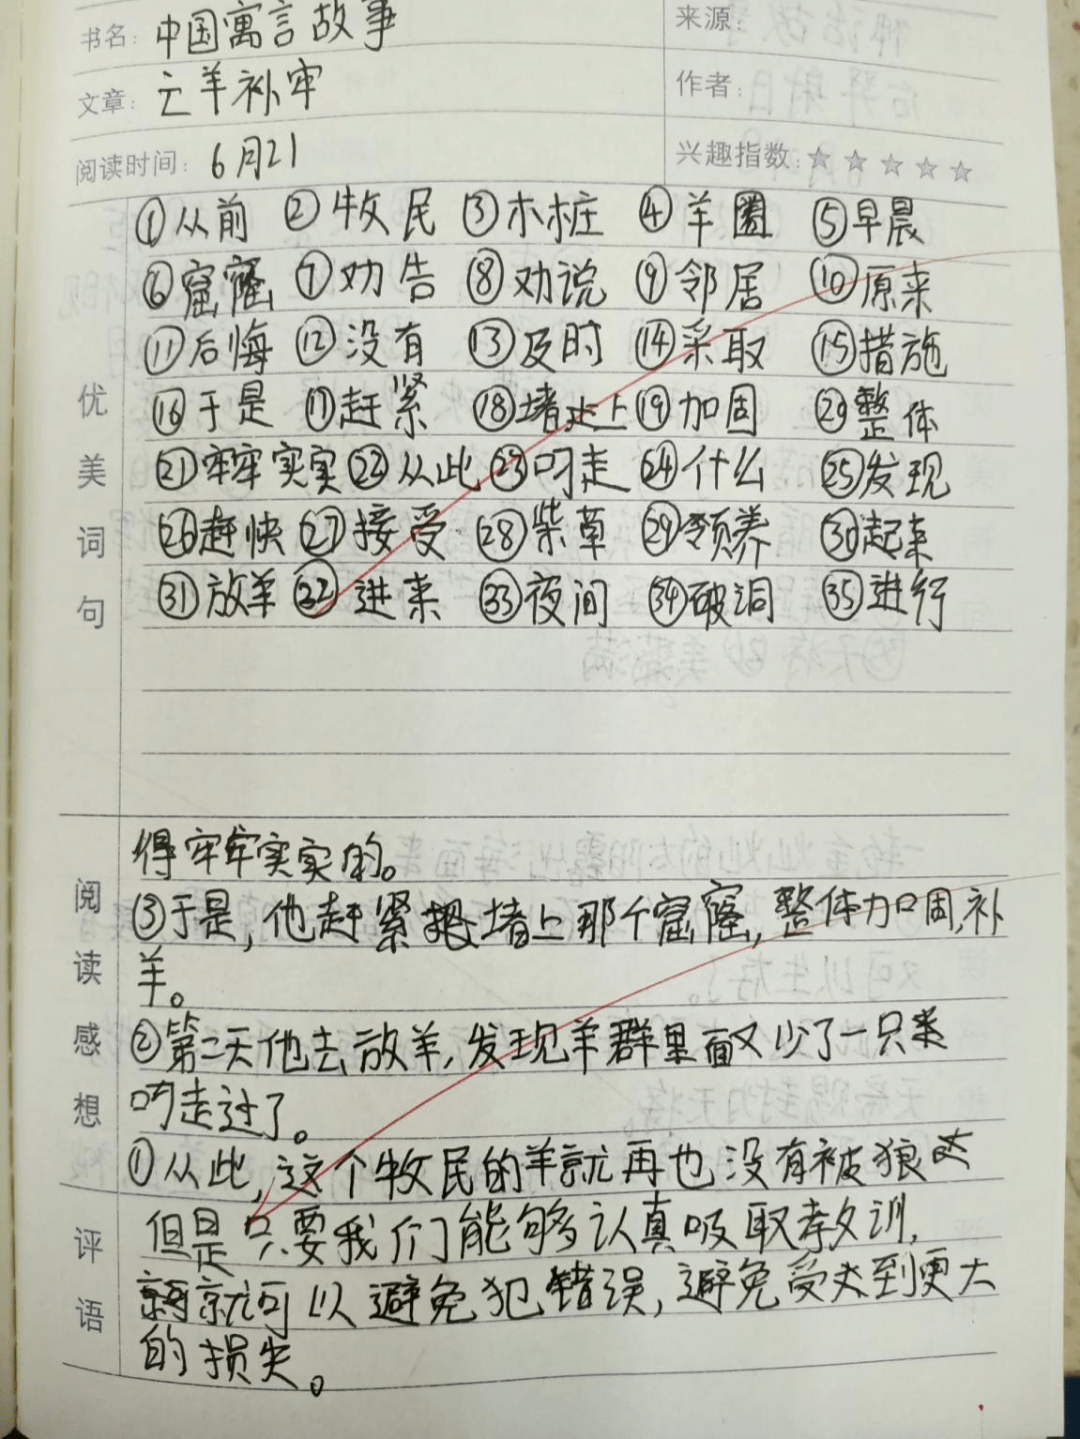 书名: 中国寓言故事 来源:
文章: 亡羊补牢 作者:
阅读时间: 6月21 兴趣指数: ☆☆☆☆☆
①从前 ②牧民 ③木桩 ④羊圈 ⑤早晨
⑥窟窿 ⑦劝告 ⑧劝说 ⑨邻居 ⑩原来
⑪后悔 ⑫没有 ⑬及时 ⑭采取 ⑮措施
⑯于是 ⑰赶紧 ⑱堵上 ⑲加固 ⑳整体
㉑牢牢实实 ㉒从此 ㉓叼走 ㉔什么 ㉕发现
㉖赶快 ㉗接受 ㉘柴草 ㉙领养 ㉚起来
㉛放羊 ㉜进来 ㉝夜间 ㉞破洞 ㉟进行
优美词句
得牢牢实实的。
③于是,他赶紧堵上那个窟窿,整体加固,补
羊。
②第二天他去放羊,发现羊群里面又少了一只羊
叼走过了。
①从此,这个牧民的羊就再也没有被狼
阅读感想
但是只要我们能够认真吸取教训,
就可以避免犯错误,避免受到更大
的损失。
评语